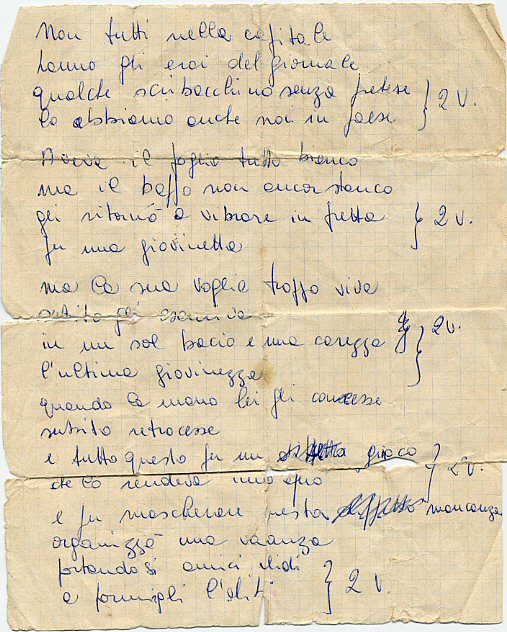 Non tutti nella capitale
hanno gli eroi del giornale
qualche scribacchino senza pretese } 2 V.
lo abbiamo anche noi in paese
Aveva il foglio tutto bianco
ma il baffo non ancor stanco
gli ritornò a vibrare in fretta } 2 V.
per una giovinetta
ma la sua voglia troppo viva
subito gli esauriva
in un sol bacio e una carezza } 2 V.
l'ultima giovinezza
quando la mano lei gli concesse
subito retrocesse
e tutto questo fu un gioco } 2 V.
che lo rendeva
e per mascherare questa mancanza
organizzò una vacanza
portandosi amici } 2 V.
a